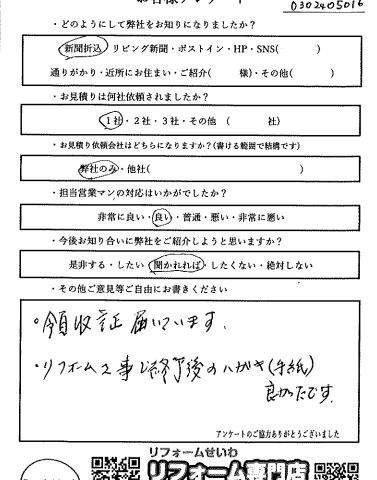 0302405016
・どのようにして弊社をお知りになりましたか？
新聞折込・リビング新聞・ポストイン・HP・SNS(　　　　)
通りがかり・近所にお住まい・ご紹介(　　　様)・その他(　　　　)
・お見積りは何社依頼されましたか？
1社・2社・3社・その他　(　　　　社)
・お見積り依頼会社はどちらになりますか？(書ける範囲で結構です)
弊社のみ・他社(　　　　　　　　　　　　　　)
・担当営業マンの対応はいかがでしたか？
非常に良い・良い・普通・悪い・非常に悪い
・今後お知り合いに弊社をご紹介しようと思いますか？
是非する・したい・聞かれれば・したくない・絶対しない
・その他ご意見等ご自由にお書きください
・領収証届いています.
・リフォーム工事ご終了後のハガキ(手紙)
良かったです.
アンケートのご協力ありがとうございました
リフォームせいわ
リフォーム専門店